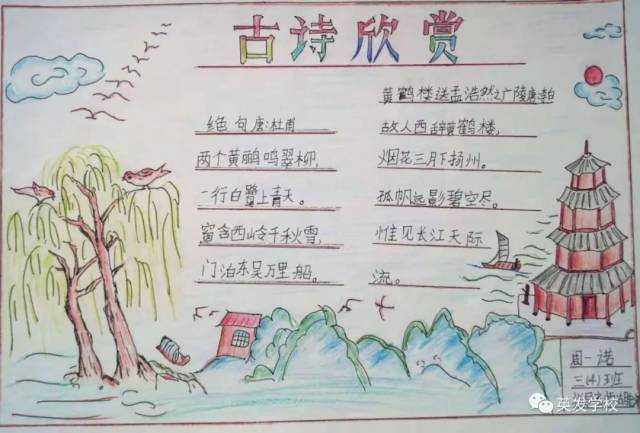 古诗欣赏
绝句 唐:杜甫
两个黄鹂鸣翠柳,
一行白鹭上青天。
窗含西岭千秋雪,
门泊东吴万里船。
黄鹤楼送孟浩然之广陵唐:李白
故人西辞黄鹤楼,
烟花三月下扬州。
孤帆远影碧空尽。
惟见长江天际
流。
周一诺
三(4)班
英发学校